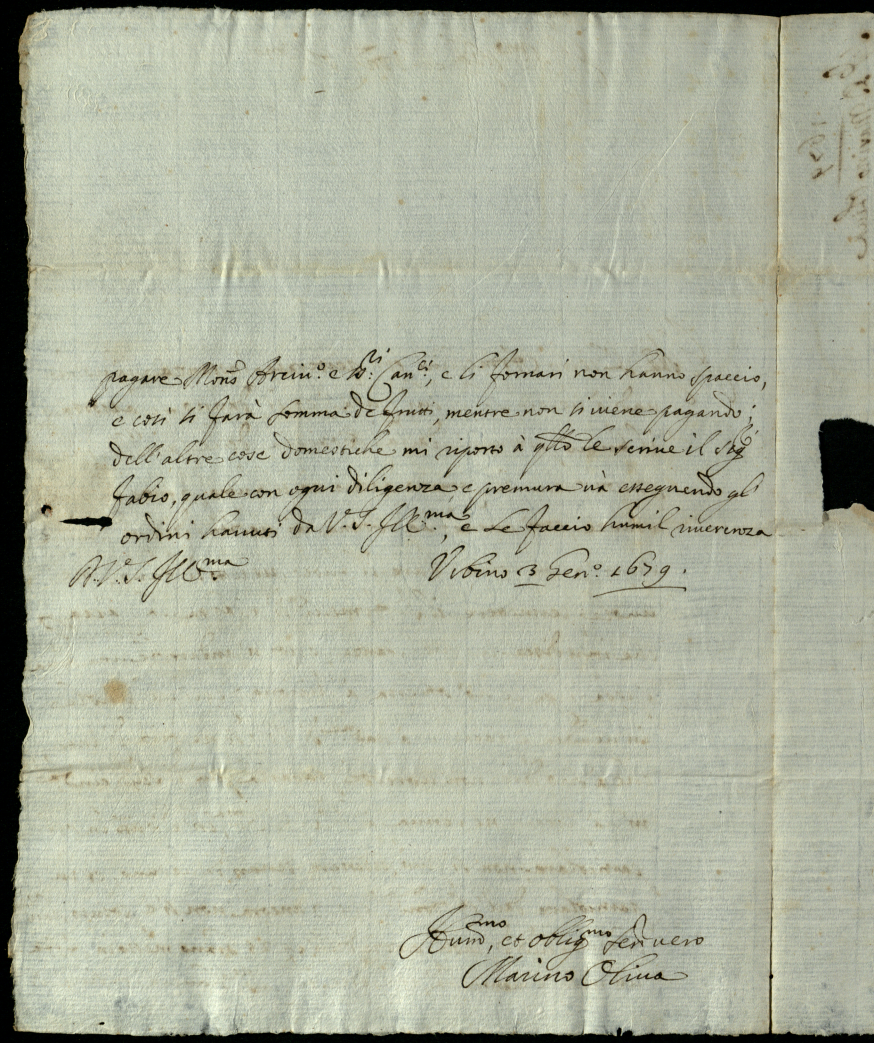 pagare Mons.r Arciv.o e SS.ri Can.ci, e li fornari non hanno spaccio,
e così si farà somma de frutti, mentre non si viene pagando;
dell'altre cose domestiche mi riporto à q.llo le scrive il Sig.r
Fabio, quale con ogni diligenza e premura và esseguendo gl'
ordini havuti da V. S. Ill.ma, e le faccio humil riverenza
D. V. S. Ill.ma Urbino 3 Gen.o 1679.
Hum.mo, et oblig.mo Ser.r vero
Marino Oliva